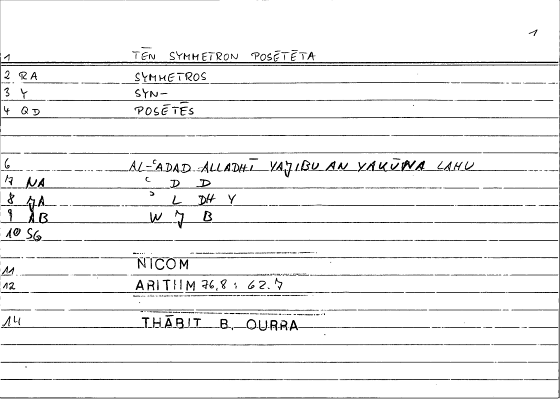 1
1 TĒN SYMMETRON POSĒTĒTA
2 RA SYMMETROS
3 Y SYN-
4 QD POSĒTĒS
6 AL-ʿADAD ALLADHĪ YAJIBU AN YAKŪNA LAHU
7 NA ʿ D D
8 JA ʾ L DH Y
9 AB W J B
10 SG
11 NICOM
12 ARITHM 76.8 : 62.7
14 THĀBIT B. QURRA